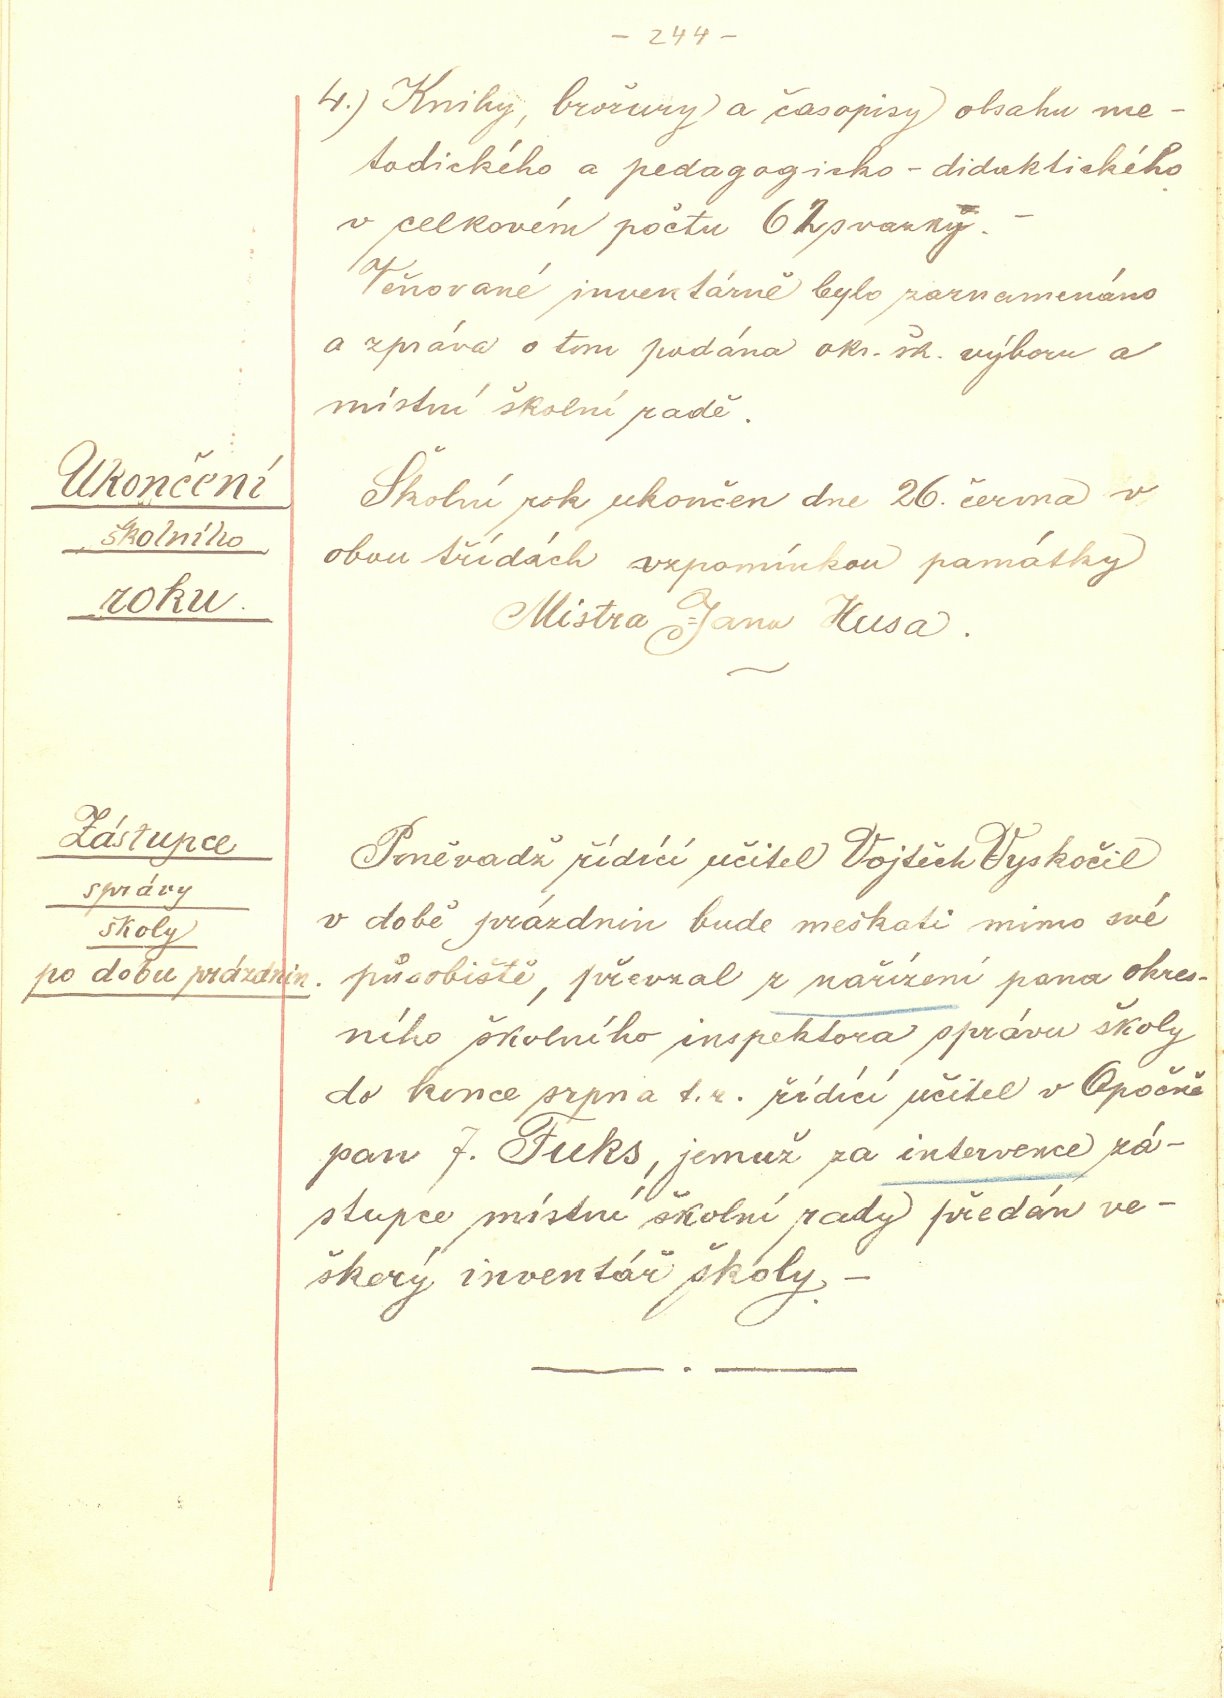 - 244 -
4.) Knihy, brožury a časopisy obsahu me-
todického a pedagogicko-didaktického
v celkovém počtu 62 svazky. -
Věnované inventárně bylo zaznamenáno
a zpráva o tom podána okr. šk. výboru a
místní školní radě.
Ukončení
školního
roku.
Školní rok ukončen dne 26. června v
obou třídách vzpomínkou památky
Mistra Jana Husa.
Zástupce
správy
školy
po dobu prázdnin.
Poněvadž řídící učitel Vojtěch Vyskočil
v době prázdnin bude meškati mimo své
působiště, převzal z nařízení pana okres-
ního školního inspektora správu školy
do konce srpna t. r. řídící učitel v Opočně
pan J. Fuks, jemuž za intervence zá-
stupce místní školní rady předán ve-
škerý inventář školy. -